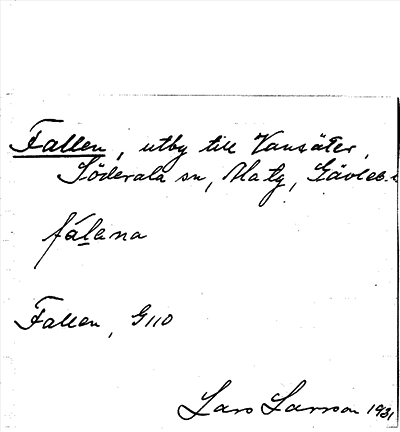 Fallen, utby till Vansäter,
Söderala sn, Ala tg, Gävleb.
fálena
Fallen, G110
Lars Larsson 1931